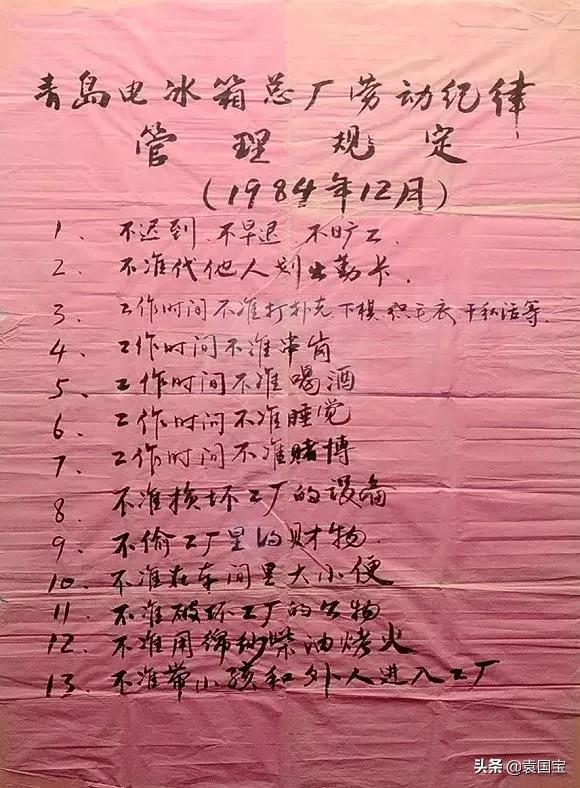 青岛电冰箱总厂劳动纪律
管理规定
(1984年12月)
1、不迟到 不早退 不旷工.
2、不准代他人划出勤卡.
3、工作时间不准打扑克 下棋 织毛衣、干私活等.
4、工作时间不准串岗
5、工作时间不准喝酒
6、工作时间不准睡觉
7、工作时间不准赌博
8、不准损坏工厂的设备
9、不偷工厂里的财物.
10、不准在车间里大小便
11、不准破坏工厂的公物
12、不准用棉纱柴油烤火
13、不准带小孩和外人进入工厂
头条 @袁国宝